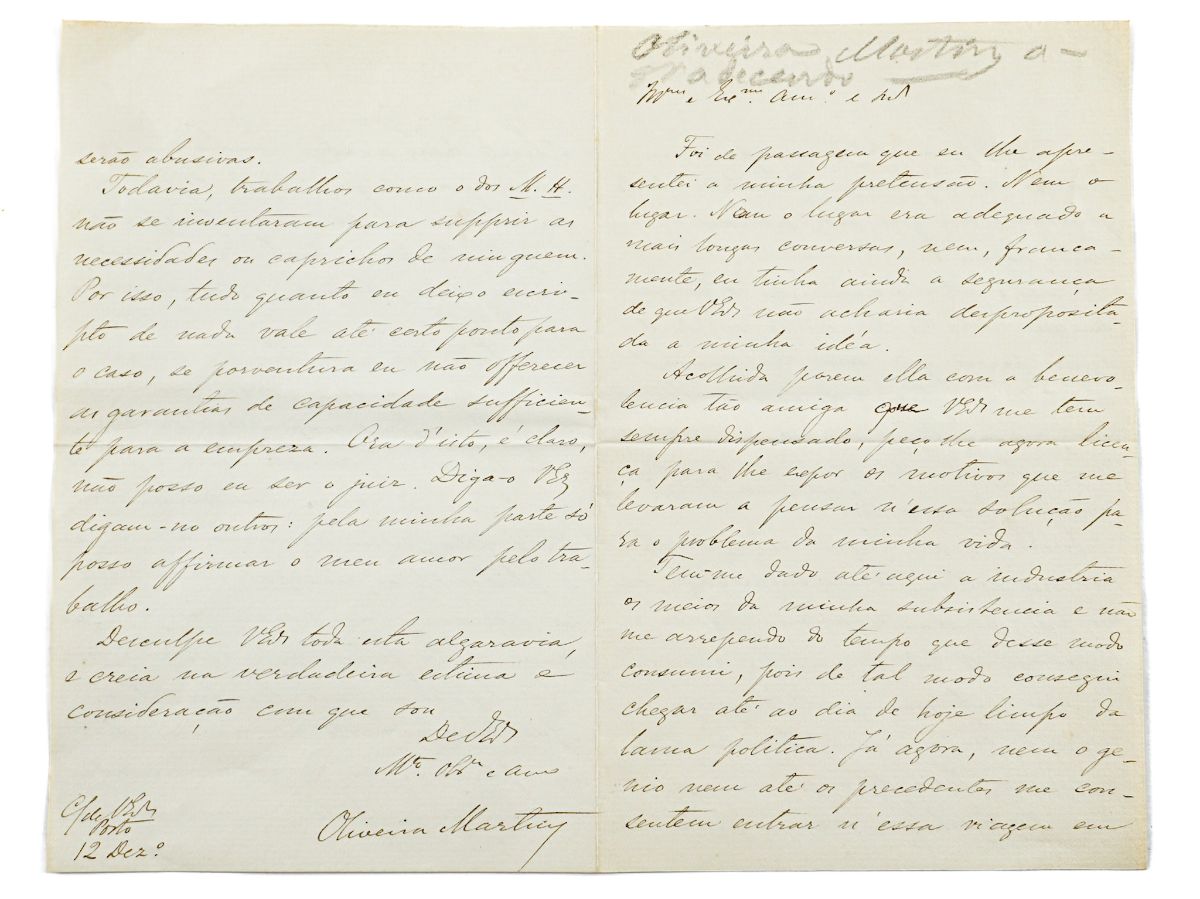 serão abusivas.
Todavia, trabalhos como o dos M. H.
não se inventaram para supprir as
necessidades ou caprichos de ninguem.
Por isso, tudo quanto eu deixo escri-
pto de nada vale até certo ponto para
o caso, se porventura eu não offerecer
as garantias de capacidade sufficien-
te para a empreza. Ora d'isto, é claro,
não posso eu ser o juiz. Diga-o VEx
digam-no outros: pela minha parte só
posso affirmar o meu amor pelo tra-
balho.
Desculpe VExª toda esta algaravia,
e creia na verdadeira estima e
consideração com que sou
De VExª
Mto. Obrº e amo
Oliveira Martins
C/de VExª
Porto
12 Dezº
Oliveira Martins a-
gradecendo
Illmo e Exmo. Am.º e Snr
Foi de passagem que eu lhe apre-
sentei a minha pretensão. Nem o
lugar. Nem o lugar era adequado a
mais longas conversas, nem, franca-
mente, eu tinha ainda a segurança
de que VExª não acharia desproposita-
da a minha idéa.
Acolhida porem ella com a benevo-
lencia tão amiga que VExª me tem
sempre dispensado, peço-lhe agora licen-
ça para lhe expor os motivos que me
levaram a pensar n'essa solução pa-
ra o problema da minha vida.
Tem-me dado até aqui a industria
os meios da minha subsistencia e não
me arrependo do tempo que desse modo
consumi, pois de tal modo consegui
chegar até ao dia de hoje limpo da
lama politica. Já agora, nem o ge-
nio nem até os precedentes me con-
sentem entrar n'essa viagem em